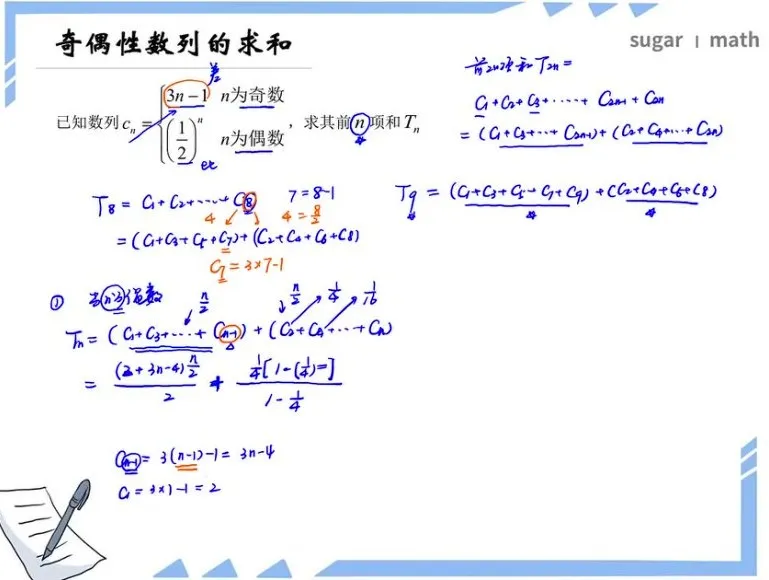 奇偶性数列的求和
sugar | math
差
已知数列 cₙ = { 3n−1 n为奇数
(1/2)ⁿ n为偶数 ，求其前 n 项和 Tₙ
前2n项和T₂ₙ=
C₁+C₂+C₃+……+C₂ₙ₋₁+C₂ₙ
=(C₁+C₃+…+C₂ₙ₋₁)+(C₂+C₄+…+C₂ₙ)
T₈ = C₁+C₂+……+C₈ 7=8-1
4 4=8/2
=(C₁+C₃+C₅+C₇)+(C₂+C₄+C₆+C₈)
C₇=3×7-1
T₉ = (C₁+C₃+C₅+C₇+C₉)+(C₂+C₄+C₆+C₈)
① 当n为偶数 n/2 n/2 1/4 1/16
Tₙ=(C₁+C₃+…+Cₙ₋₁)+(C₂+C₄+…+Cₙ)
= (2+3n-4)n/2 / 2 + 1/4[1-(1/4)^=] / 1-1/4
Cₙ₋₁=3(n-1)-1=3n-4
C₁=3×1-1=2